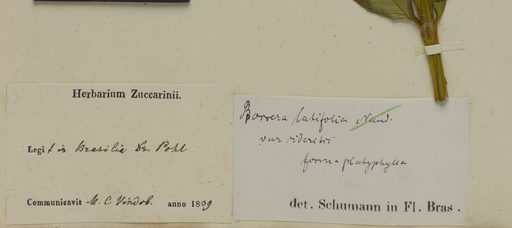 Herbarium Zuccarinii.
Legit in Brasilia Dr. Pohl
Communicavit M. C. Vindob. anno 1839
Borreria latifolia
var. sideritis
forma platyphylla
det. Schumann in Fl. Bras.